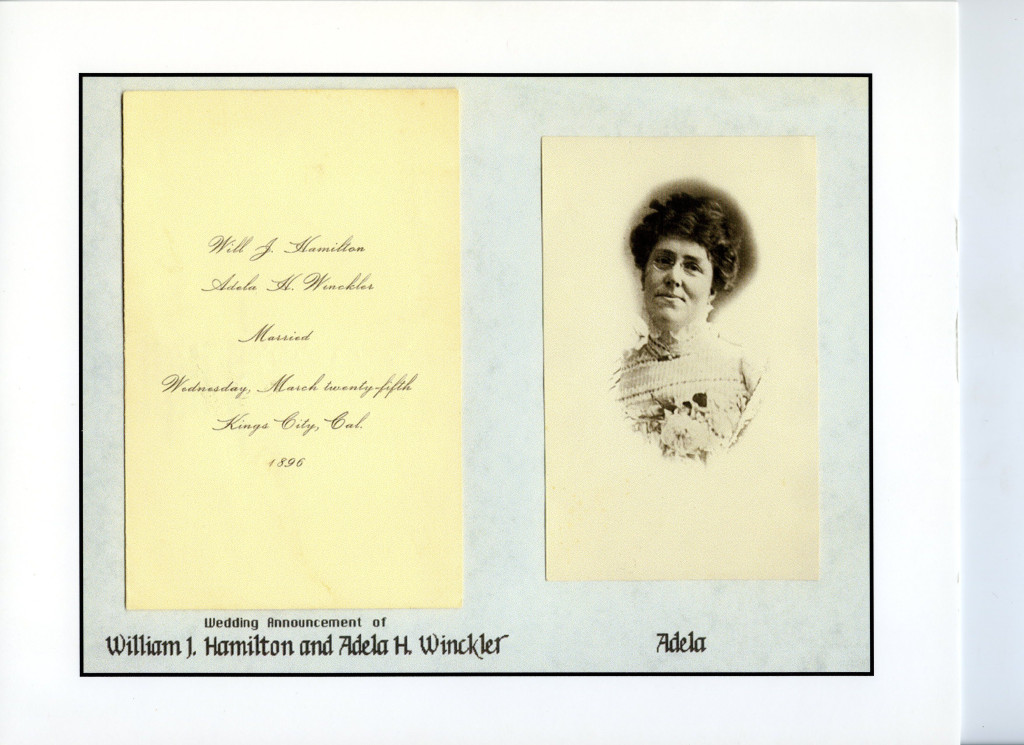 Will J. Hamilton
Adela H. Winckler
Married
Wednesday, March twenty-fifth
Kings City, Cal.
1896
Wedding Announcement of
William J. Hamilton and Adela H. Winckler
Adela